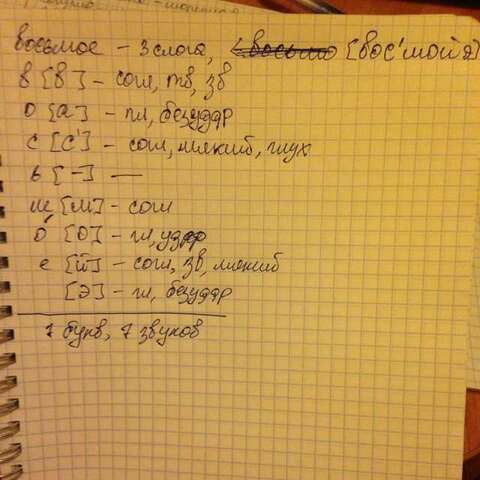 восьмое – 3 слога, [вос'мойэ]
в [в] – согл, тв, зв
о [а] – гл, безудар
с [с'] – согл, мягкий, глух
ь [–] —
м [м] – согл
о́ [о] – гл, удар
е [й] – согл, зв, мягкий
[э] – гл, безудар
7 букв, 7 звуков